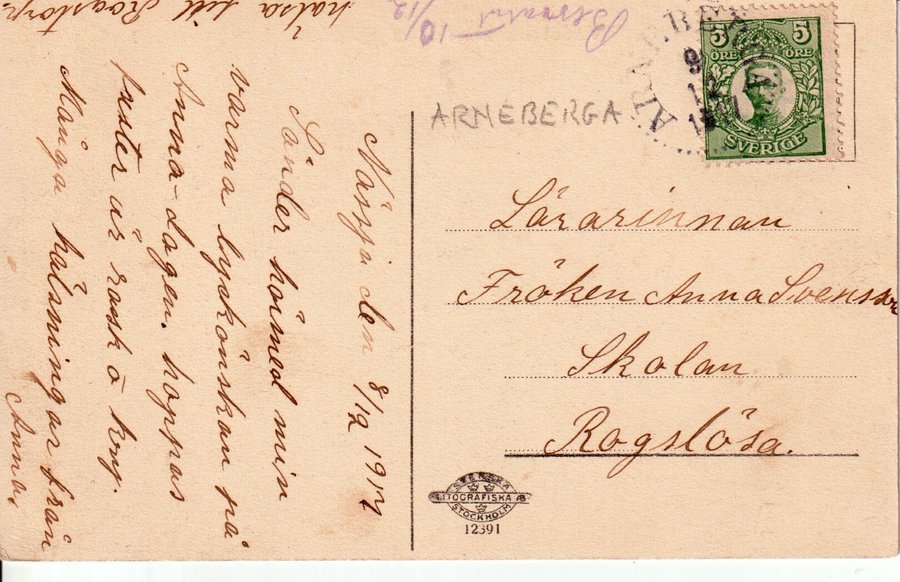 hälsa till Rogstorp
Besvarat 10/12
Nässja den 8/12 1917
Sänder härmed min
varma lyckönskan på
Anna-dagen. hoppas
syster är rask o kry.
Många hälsningar från
Anna.
ARNEBERGA
ARNEBERGA
9
12
1917
5 5
ÖRE ÖRE
SVERIGE
Lärarinnan
Fröken Anna Svensson
Skolan
Rogslösa.
SVENSKA
LITOGRAFISKA AB
STOCKHOLM
12391